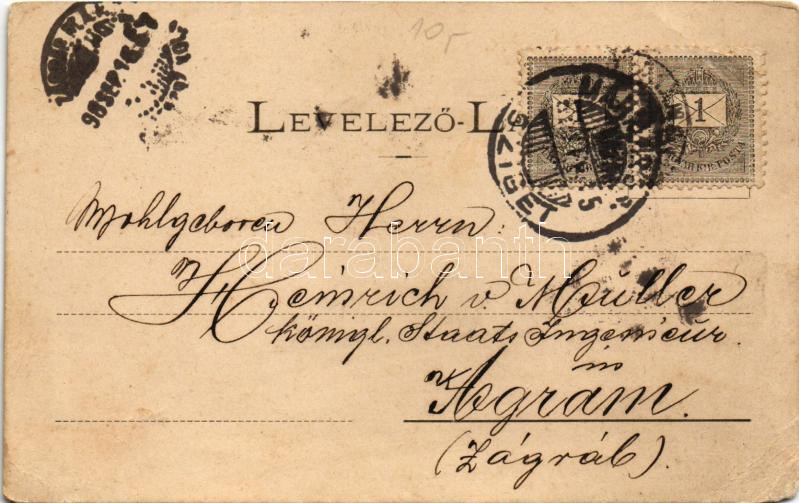 10,-
LEVELEZŐ-L
1
SZIGET
darabanth
Wohlgeboren Herrn:
Heinrich v. Müller
königl. Staats Ingenieur.
in
Agram.
(Zágráb).